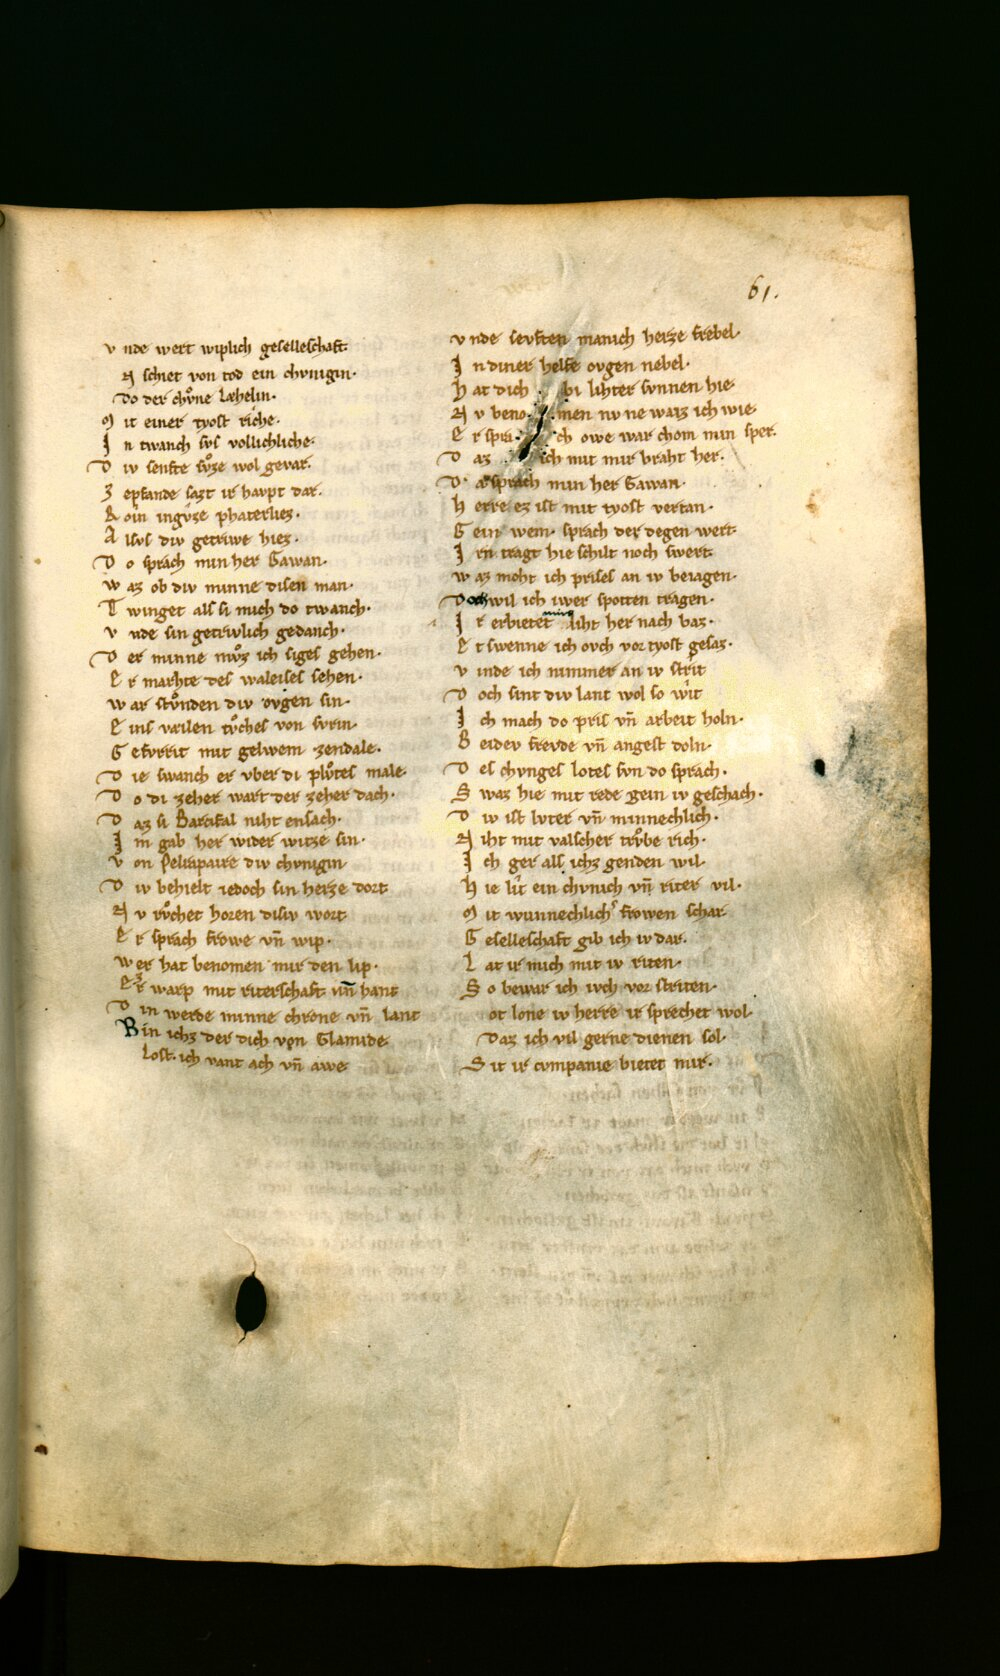 61.
v nde wert wiplich geselleschaft·
N schiet von tod ein chvnigin·
Do der chvͦne Læhelin·
M it einer tyost riche·
J n twanch svs vollichliche·
D iv senfte svͦze wol gevar·
Z epfande sazt ir havpt dar·
R oin ingvͦze phaterliez·
A lsvs div getriwe hiez·
D o sprach min her Gawan·
W az ob div minne disen man·
T winget als si mich do twanch·
v nde sin getriwlich gedanch·
D er minne mvͦz ich siges gehen·
E r marhte des waleises sehen·
W ar stvͦnden div ovgen sin·
E ins vælen tvͦches von svrin·
G efvrrit mit gelwem zendale·
D ie swanch er vber di plvͦtes male·
D o di zeher wart der zeher dach·
D az si Parcifal niht ensach·
J m gab her wider witze sin·
v on Pelrapaire div chvnigin
D iv behielt iedoch sin herze dort
N v rvͦchet horen disiv wort
E r sprach frowe vn̄ wip·
W er hat benomen mir den lip·
E rwarp mit riterschaft min hant
D in werde minne chrone vn̄ lant
Bin ichz der dich von Clamide
Lost· ich vant ach vn̄ awe
v nde sevften manich herze frebel·
J n diner helfe ovgen nebel·
H at dich bi lihter svnnen hie
N v beno men nv ne waiz ich wie·
E r spra ch owe war chom min sper·
D az ich mit mir braht her·
D· a sprach min her Gawan·
H erre ez ist mit tyost vertan·
G ein wem· sprach der degen wert
J rn tragt hie schilt noch swert
W az moht ich prises an iv beiagen·
Doch wil ich iwer spotten tragen·
J r erbietet mirz liht her nach baz·
E t swenne ich ovch vor tyost gesaz·
v inde ich nimmer an iv strit
D och sint div lant wol so wit
J ch mach do pris vn̄ arbeit holn·
B eidev frevde vn̄ angest doln·
D es chvnges lotes svn do sprach·
S waz hie mit rede gein iv geschach·
D iv ist lvter vn̄ minnechlich·
N iht mit valscher trvͦbe rich·
J ch ger als ichz genden wil·
H ie lit ein chvnich vn̄ riter vil·
M it wunnechlich͛ frowen schar
G eselleschaft gib ich iv dar·
L at ir mich mit iv riten·
S o bewar ich ivch vor striten·
ot lone iv herre ir sprechet wol·
Daz ich vil gerne dienen sol·
S it ir cvmpanie bietet mir·